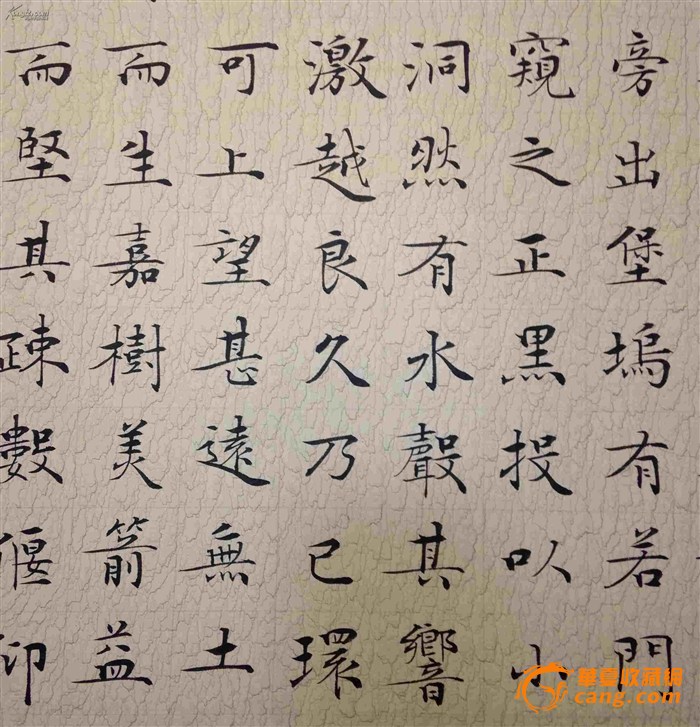 旁出堡塢有若門
窺之正黑投以小
洞然有水聲其響
激越良久乃已環
可上望甚遠無土
而生嘉樹美箭益
而堅其疎數偃仰
華夏收藏網
cang.com